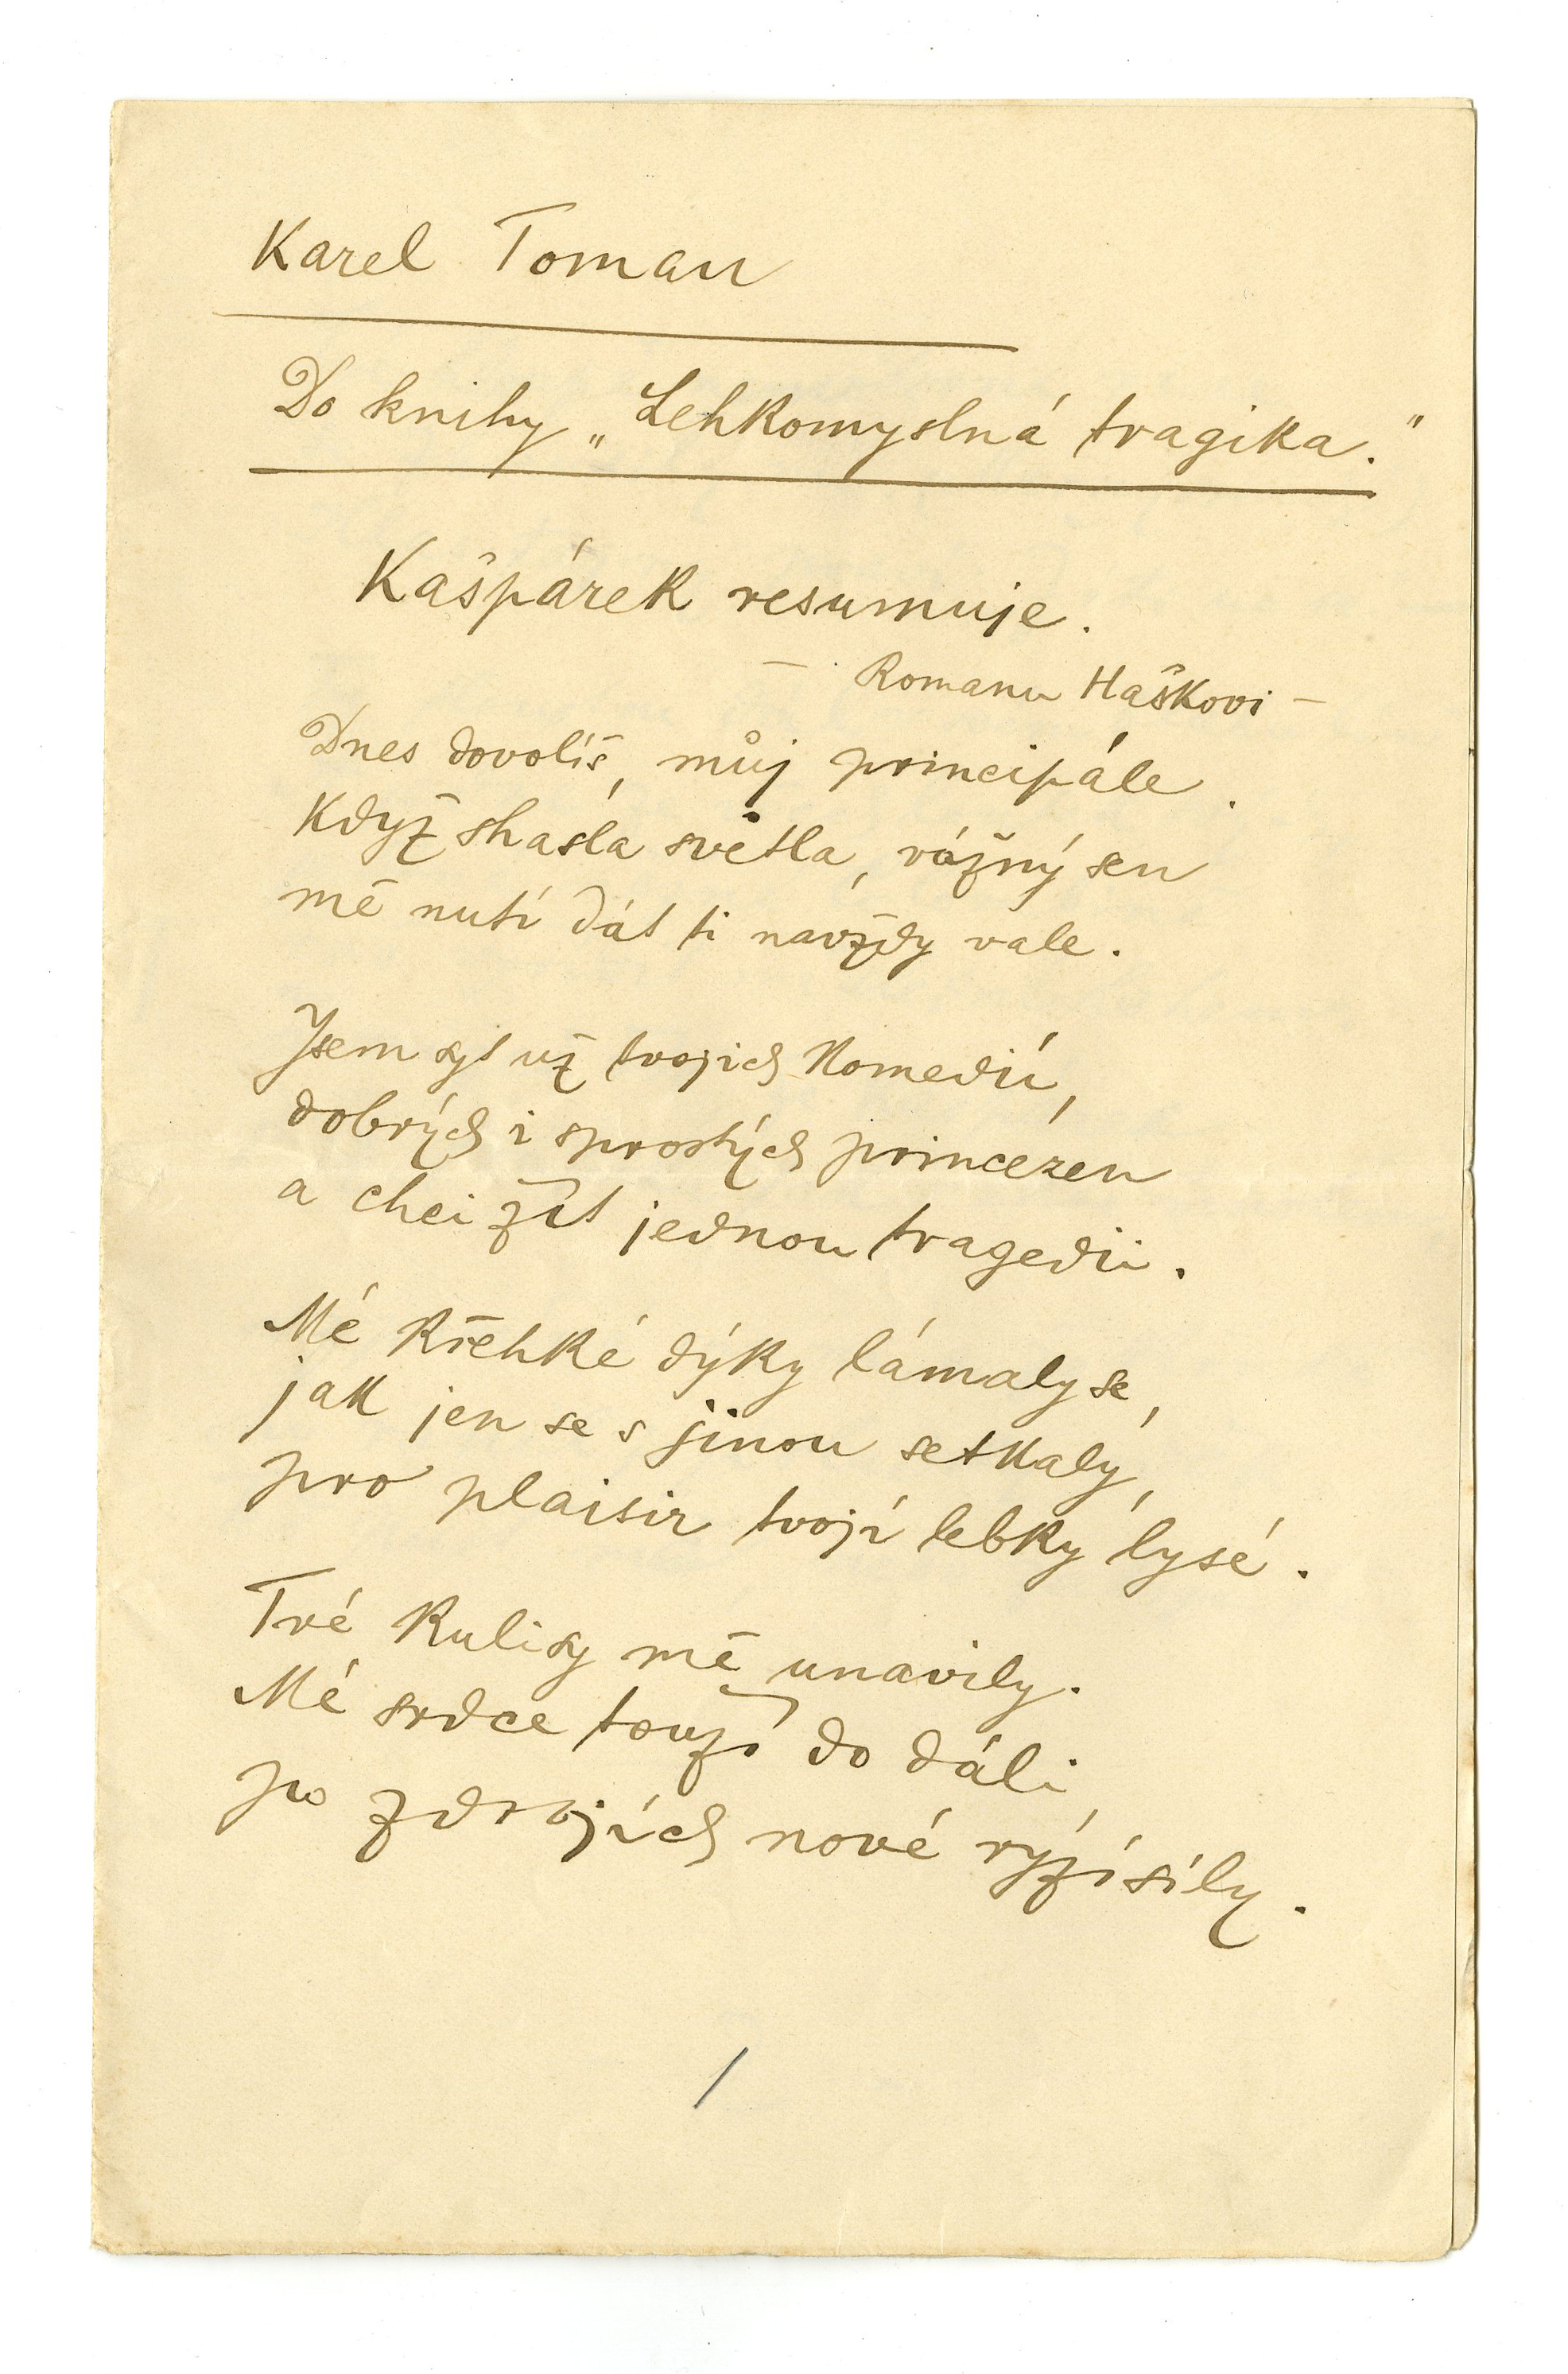 Karel Toman
Do knihy „Lehkomyslná tragika."
Kašpárek resumuje.
— Romanu Haškovi —
Dnes dovolíš, můj principále.
Když shasla světla, vážný sen
mě nutí dát ti navždy vale.
Jsem syt už tvojich komedií,
dobrých i sprostých princezen
a chci žít jednou tragedii.
Mé křehké dýky lámaly se,
jak jen se s jinou setkaly,
pro plaisir tvojí lebky lysé.
Tvé kulisy mě unavily.
Mé srdce touží do dáli,
po zdrojích nové ryzí síly.
1